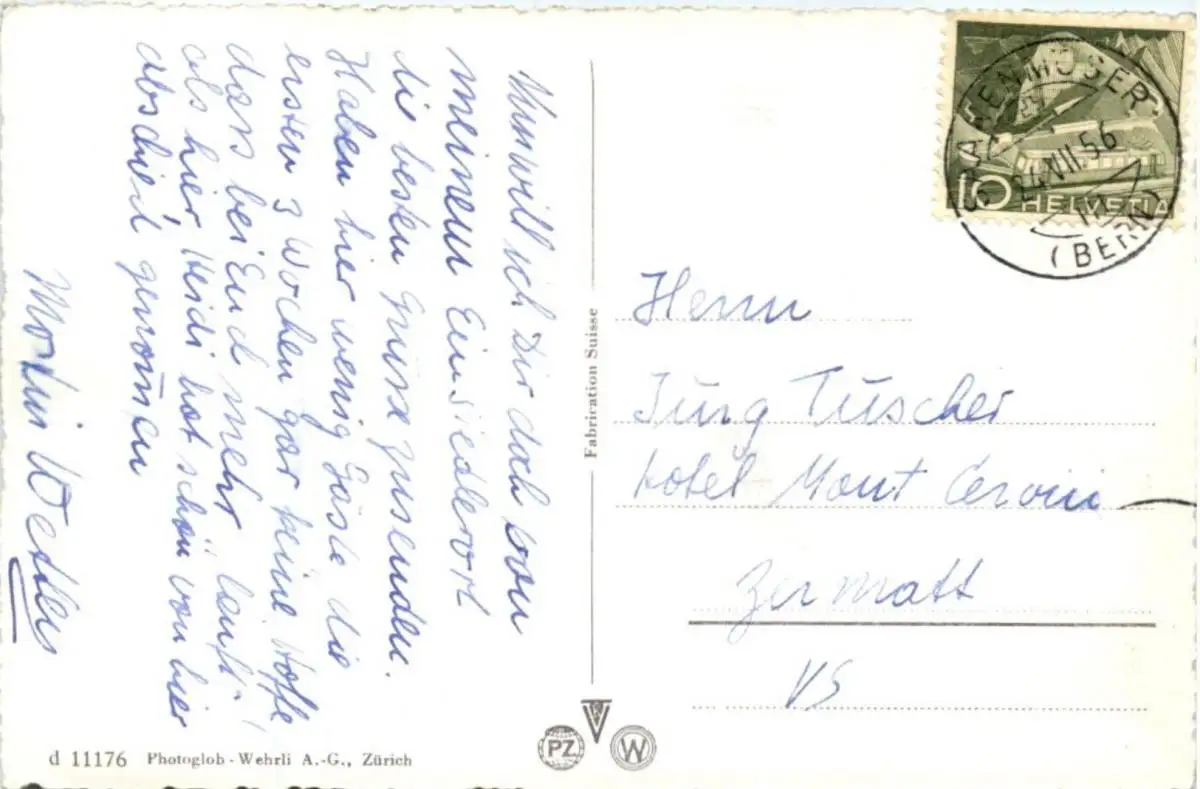 Nun will ich Dir doch von
meinem Einsiedlerort
die besten Grüsse zusenden.
Haben hier wenig Gäste die
ersten 3 Wochen gar keine Hoffe
dass bei Euch mehr läuft!
als hier Heidi hat schon von hier
abschied genomen
Martin
Herrn
Jürg Tüscher
Hotel Mont Cervin
Zermatt
VS
SAANENMÖSER
24.VII.56
(BERN)
10 HELVETIA
Fabrication Suisse
PZ W
d 11176 Photoglob-Wehrli A.-G., Zürich